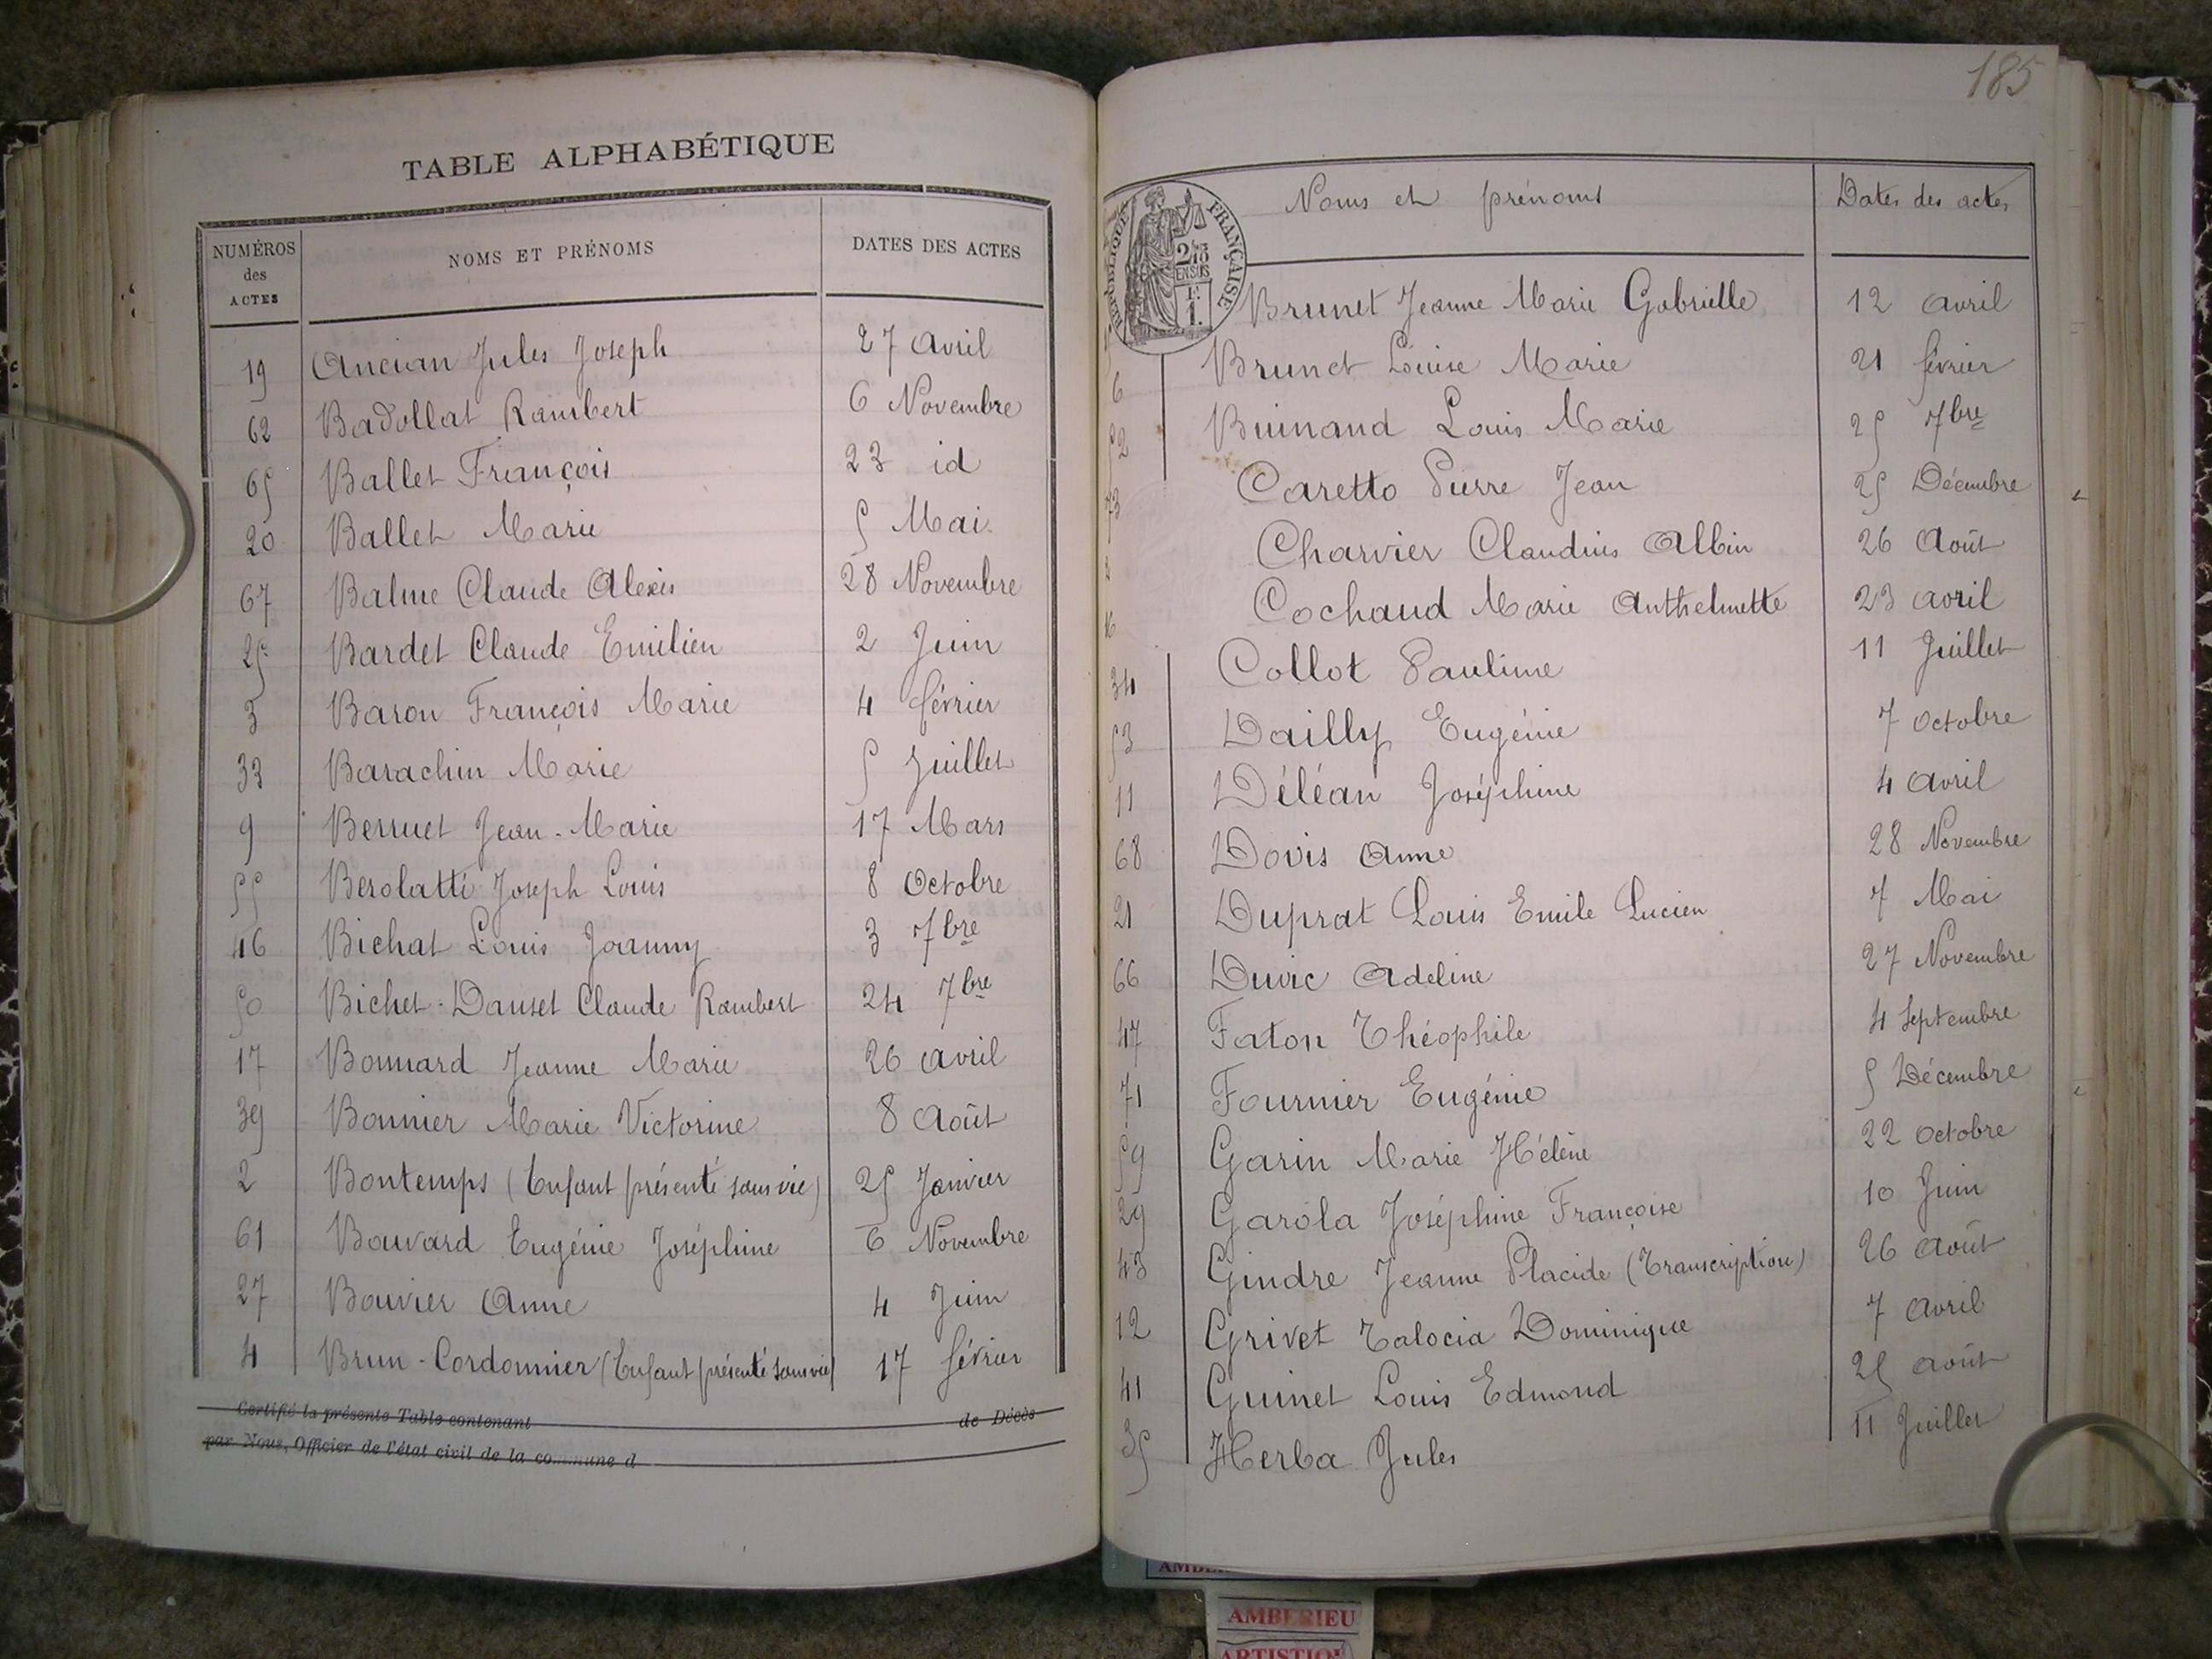 TABLE ALPHABÉTIQUE
NUMÉROS des ACTES NOMS ET PRÉNOMS DATES DES ACTES
19 Ancian Jules Joseph 27 Avril
62 Badollat Rambert 6 Novembre
65 Ballet François 23 id
20 Ballet Marie 5 Mai
67 Balme Claude Alexis 28 Novembre
25 Bardet Claude Emilien 2 Juin
3 Baron François Marie 4 février
33 Barachin Marie 5 Juillet
9 Berruet Jean-Marie 17 Mars
55 Berolatti Joseph Louis 8 Octobre
46 Bichat Louis Joanny 3 7bre
50 Bichet-Danset Claude Rambert 24 7bre
17 Bonnard Jeanne Marie 26 avril
39 Bonnier Marie Victorine 8 Août
2 Bontemps (Enfant présenté sans vie) 25 Janvier
61 Bouvard Eugénie Joséphine 6 Novembre
27 Bouvier Anne 4 Juin
4 Brun-Cordonnier (Enfant présenté sans vie) 17 février
Certifié la présente Table contenant de Décès
par Nous, Officier de l'état civil de la commune d
185
RÉPUBLIQUE FRANÇAISE
2/10 EN SUS
Noms et prénoms Dates des actes
Brunet Jeanne Marie Gabrielle 12 avril
6 Brunet Louise Marie 21 février
52 Buinand Louis Marie 25 7bre
73 Caretto Pierre Jean 25 Décembre
Charvier Claudius Albin 26 Août
16 Cochaud Marie Anthelmette 23 avril
34 Collot Pauline 11 Juillet
53 Dailly Eugénie 7 octobre
11 Déléan Joséphine 4 avril
68 Dovis Anne 28 Novembre
21 Duprat Louis Emile Lucien 7 Mai
66 Duvic Adeline 27 Novembre
47 Faton Théophile 4 Septembre
71 Fournier Eugénie 5 Décembre
59 Garin Marie Hélène 22 octobre
29 Garola Joséphine Françoise 10 Juin
43 Gindre Jeanne Placide (Transcription) 26 août
12 Grivet Talocia Dominique 7 avril
41 Guinet Louis Edmond 25 août
35 Herba Jules 11 Juillet
AMBERIEU